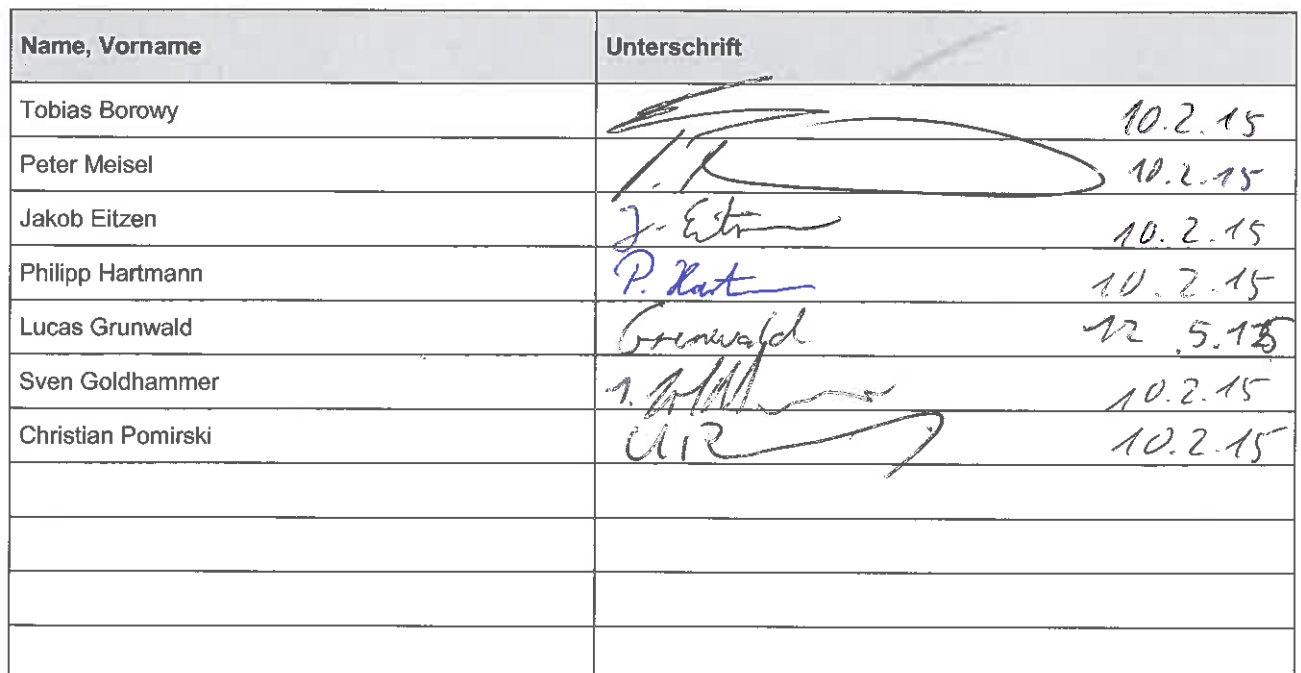 Name, Vorname Unterschrift
Tobias Borowy 10.2.15
Peter Meisel 10.2.15
Jakob Eitzen J. Eitzen 10.2.15
Philipp Hartmann P. Hart 10.2.15
Lucas Grunwald Grunwald
Sven Goldhammer 10.2.15
Christian Pomirski 10.2.15